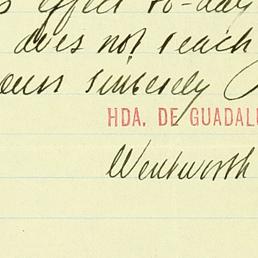 effect to-day
does not reach
sincerely
HDA. DE GUADAL
Wentworth